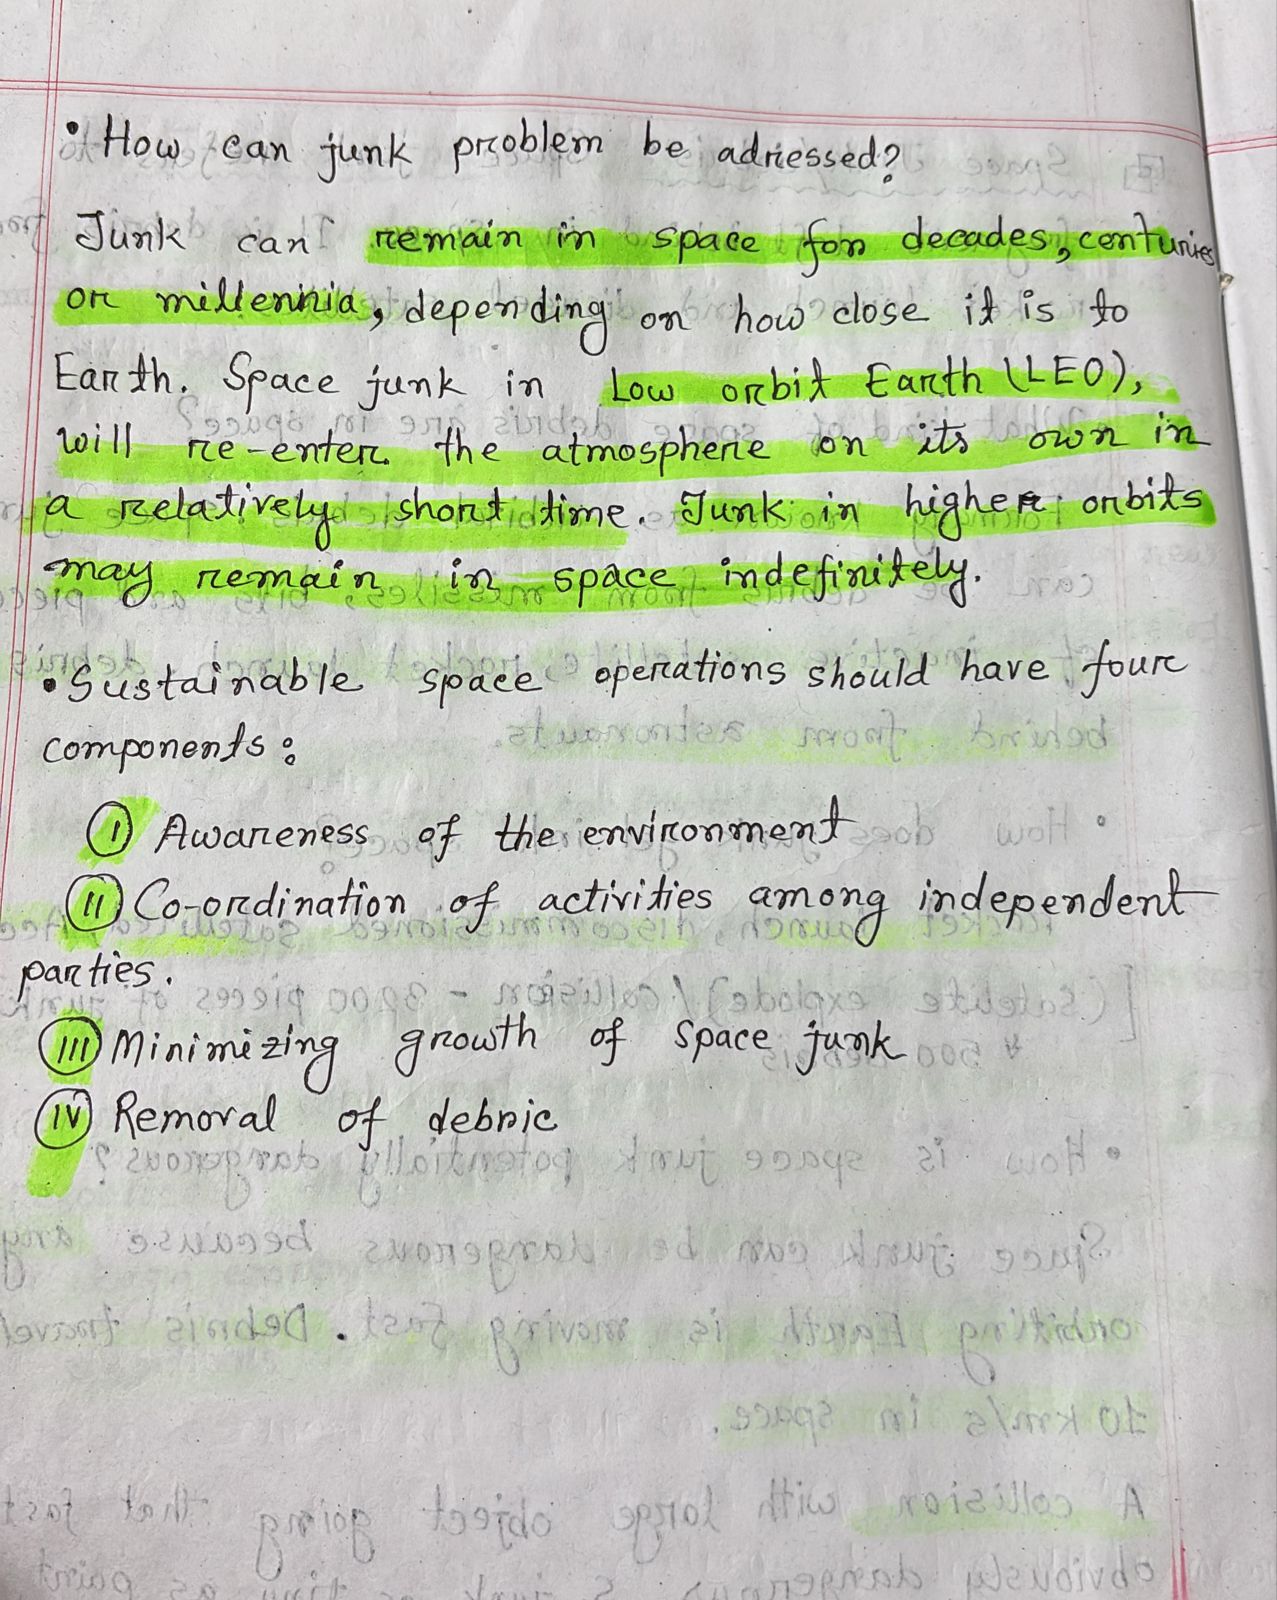 • How can junk problem be adressed?
Junk can remain in space for decades, centuries
or millennia, depending on how close it is to
Earth. Space junk in Low orbit Earth (LEO),
will re-enter the atmosphere on its own in
a relatively short time. Junk in higher orbits
may remain in space indefinitely.
• Sustainable space operations should have four
components:
(I) Awareness of the environment
(II) Co-ordination of activities among independent
parties.
(III) Minimizing growth of space junk
(IV) Removal of debric